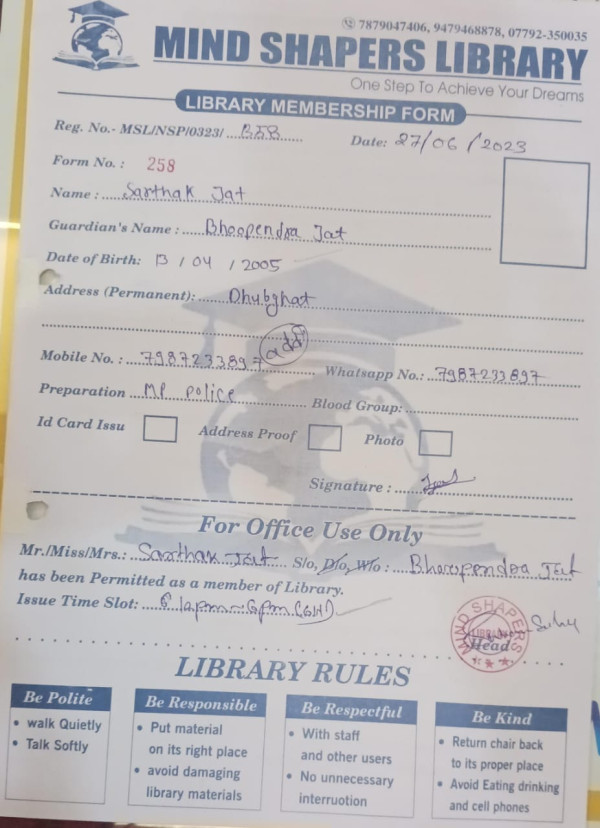 7879047406, 9479468878, 07792-350035
MIND SHAPERS LIBRARY
One Step To Achieve Your Dreams
LIBRARY MEMBERSHIP FORM
Reg. No.- MSL/NSP/0323/
Date: 27/06/2023
Form No. : 258
Name : Sarthak Jat
Guardian's Name : Bhoopendra Jat
Date of Birth: 13 / 04 / 2005
Address (Permanent): Dhubghat
Mobile No. : 7987233897 add Whatsapp No.: 7987233897
Preparation MP police Blood Group:
Id Card Issu Address Proof Photo
Signature :
For Office Use Only
Mr./Miss/Mrs.: Sarthak Jat S/o, D/o, W/o : Bhoopendra Jat
has been Permitted as a member of Library.
Issue Time Slot: 6pm
MIND SHAPERS
LIBRARY
Head
LIBRARY RULES
Be Polite
• walk Quietly
• Talk Softly
Be Responsible
• Put material
on its right place
• avoid damaging
library materials
Be Respectful
• With staff
and other users
• No unnecessary
interruotion
Be Kind
• Return chair back
to its proper place
• Avoid Eating drinking
and cell phones